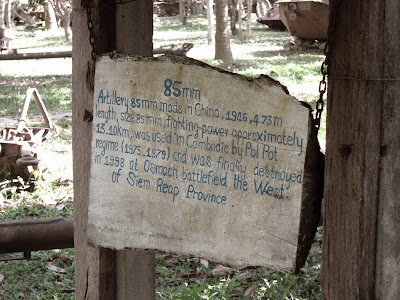 85mm
Artillery 85mm made in China, 1946, 4.75m
length, size 85 mm, fighting power approximately
15.10Km, was used in Cambodia by Pol Pot
regime (1975-1979) and was finally destroyed
in 1998 at Osmach battlefield the West
of Siem Reap Province